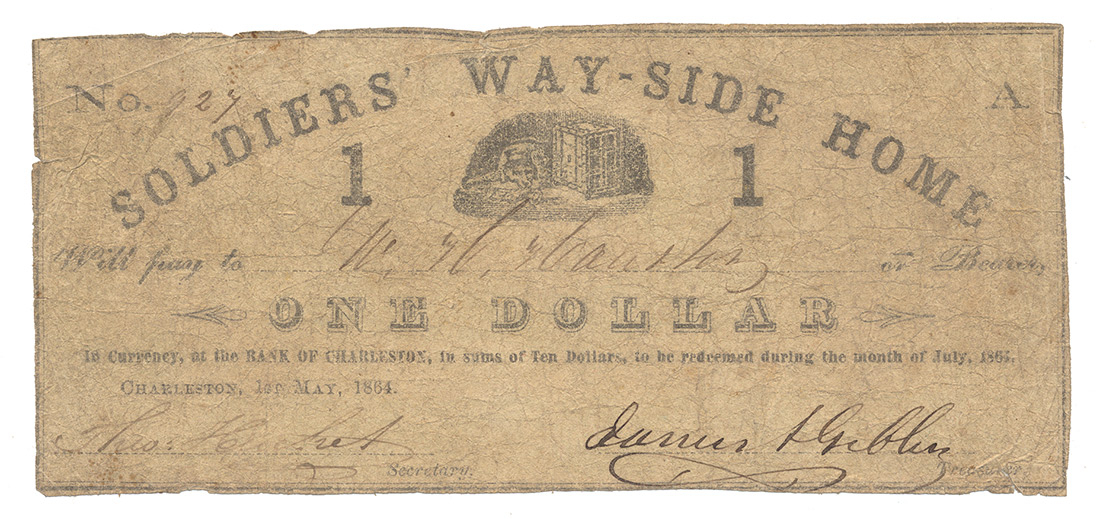 No. 927 A
SOLDIERS' WAY-SIDE HOME
1 1
Will pay to W. H. or Bearer,
ONE DOLLAR
In Currency, at the BANK OF CHARLESTON, in sums of Ten Dollars, to be redeemed during the month of July, 1864.
CHARLESTON, 1st MAY, 1864.
Thos. James
Secretary. Treasurer.